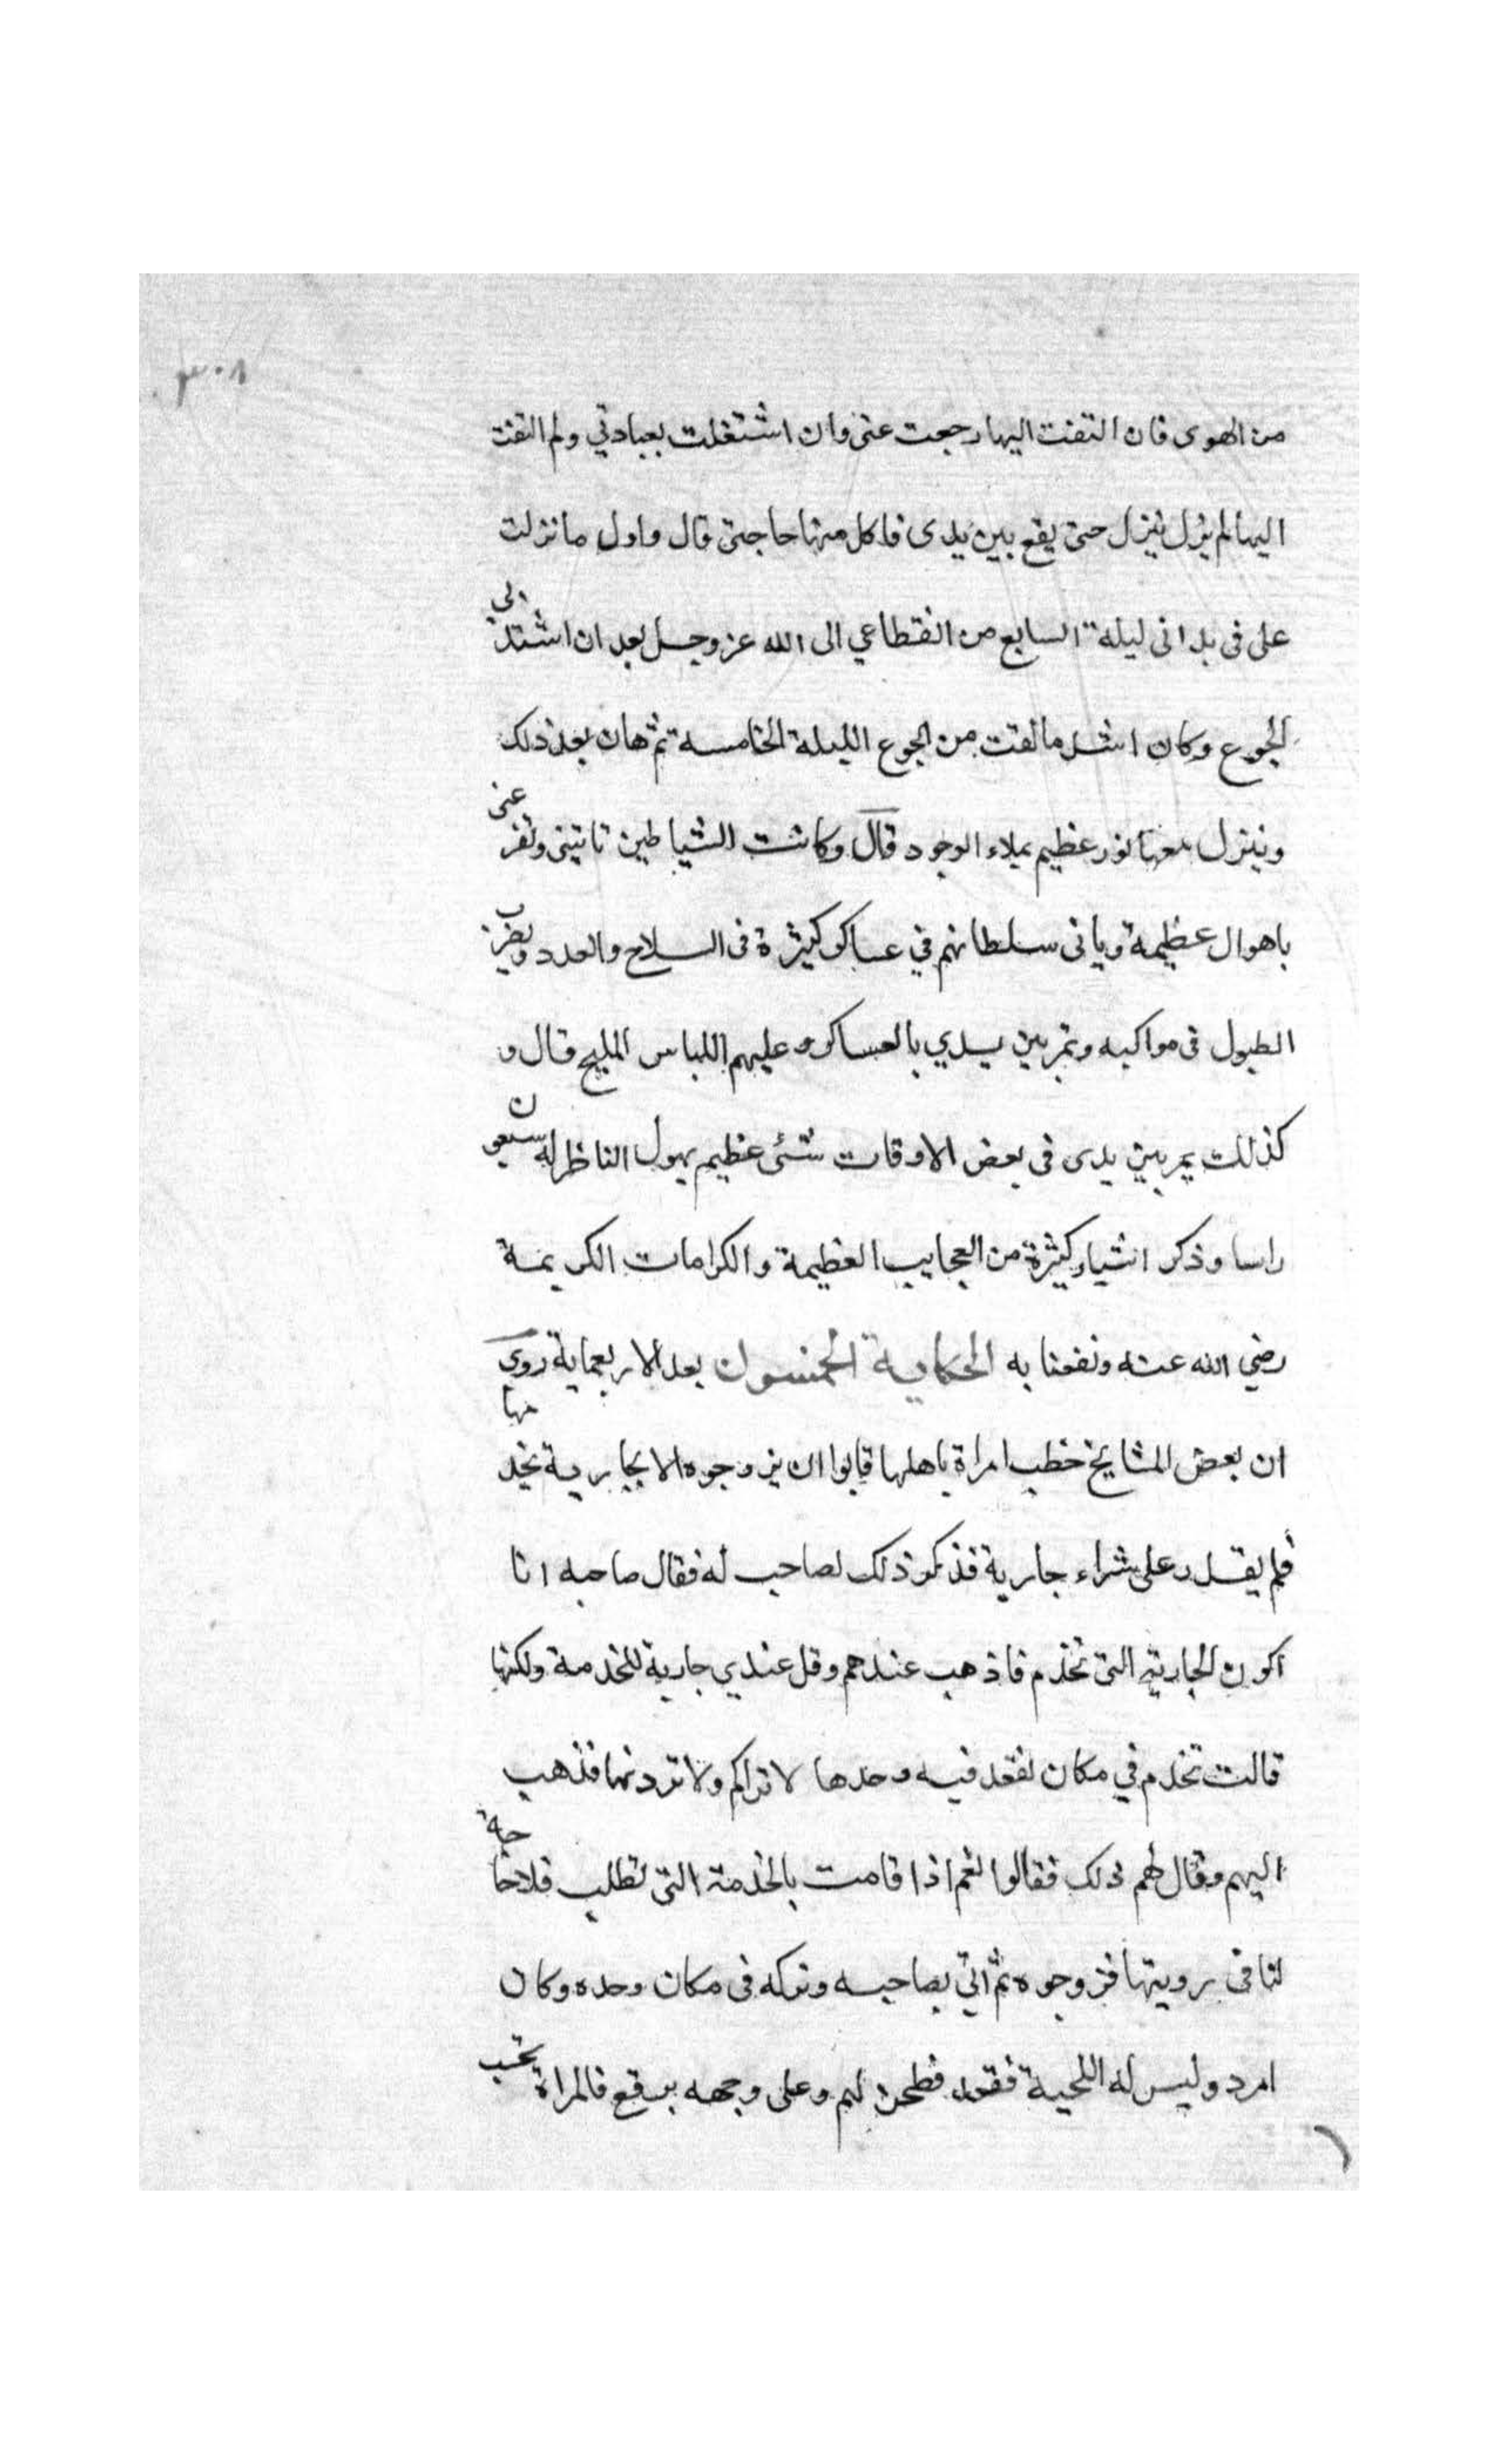 ٣٠٨
من الهوى فان التفت اليها رجعت عنى وان اشتغلت بعبادتي ولم التفت
اليها لم يزل ينزل حتى يقع بين يدى فاكل منها حاجتى قال واول ما نزلت
على فى بدانى ليلة السابع من انقطاعي الى الله عز وجل بعد ان اشتد بى
الجوع وكان اشد ما لقيت من الجوع الليلة الخامسه ثم هان بعد ذلك
وينزل معها نور عظيم يملاء الوجود قال وكانت الشياطين تاتينى وتفز عنى
باهوال عظيمة وياتى سلطانهم في عساكر كثيرة فى السلاح والعدد ويضرب
الطبول فى مواكبه وتمر بين يدي بالعساكر وعليهم اللباس المليح قال و
كذلك يمر بين يدى فى بعض الاوقات شئ عظيم يهول الناظر له سبعون
راسا وذكر اشياء كثيرة من العجايب العظيمة والكرامات الكريمة
رضي الله عنه ونفعنا به الحكاية الخمسون بعد الاربعماية روى
ان بعض المشايخ خطب امراة باهلها فابوا ان يزوجوه الا بجارية تخدمها
فلم يقدر على شراء جارية فذكر ذلك لصاحب له فقال صاحبه انا
اكون الجارية التى تخدم فاذهب عندهم وقل عندي جارية للخدمة ولكنها
قالت تخدم في مكان تقعد فيه وحدها لا تراكم ولا ترونها فذهب
اليهم وقال لهم ذلك فقالوا نعم اذا قامت بالخدمة التى تطلب فلا حاجة
لنا فى رويتها فزوجوه ثم اتي بصاحبه وتركه فى مكان وحده وكان
امرد وليس له اللحية فقعد فطحن لهم وعلى وجهه برقع فالمراة تحسب